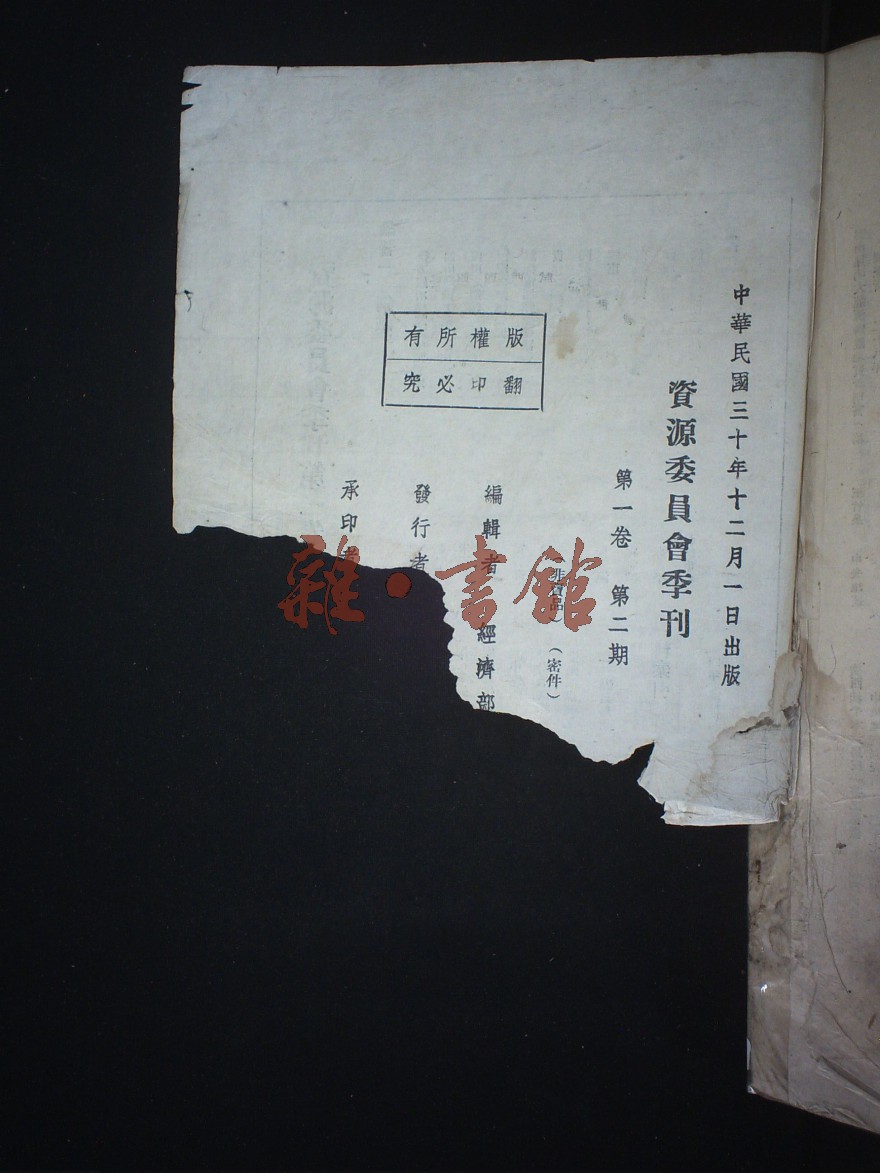 中華民國三十年十二月一日出版
資源委員會季刊
第一卷 第二期
（非賣品）（密件）
編輯者 經濟部
發行者
承印
版權所有
翻印必究
雜·書館